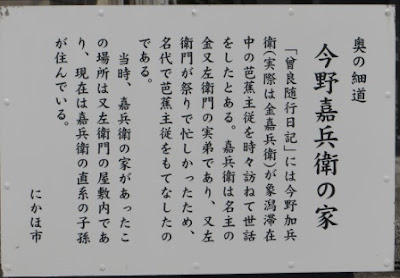 奥の細道
今野嘉兵衛の家
「曾良随行日記」には今野加兵
衛(実際は金嘉兵衛)が象潟滞在
中の芭蕉主従を時々訪ねて世話
をしたとある。嘉兵衛は名主の
金又左衛門の実弟であり、又左
衛門が祭りで忙しかったため、
名代で芭蕉主従をもてなしたの
である。
当時、嘉兵衛の家があったこ
の場所は又左衛門の屋敷内であ
り、現在は嘉兵衛の直系の子孫
が住んでいる。
にかほ市